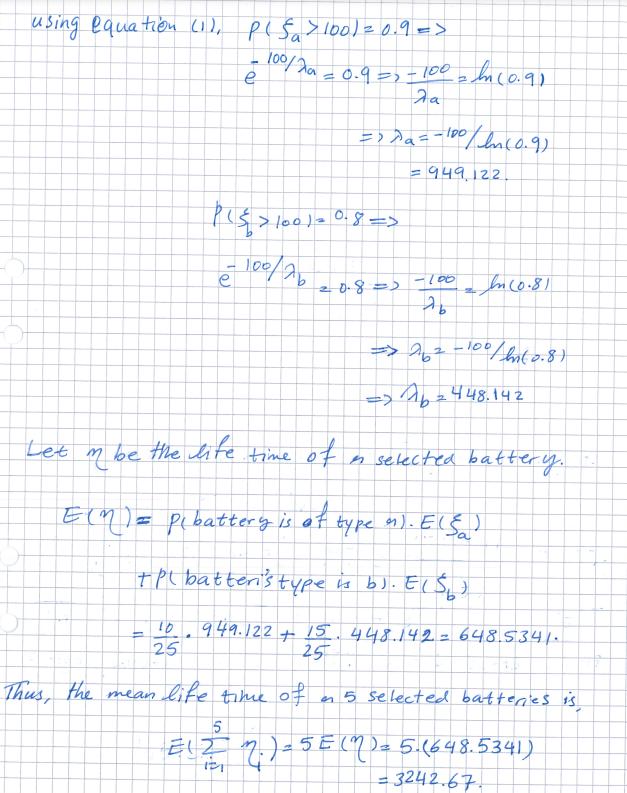 using equation (1), P(ξa > 100) = 0.9 =>
e^-100/λa = 0.9 => -100/λa = ln(0.9)
=> λa = -100/ln(0.9)
= 949.122.
P(ξb > 100) = 0.8 =>
e^-100/λb = 0.8 => -100/λb = ln(0.8)
=> λb = -100/ln(0.8)
=> λb = 448.142
Let η be the life time of a selected battery.
E(η) = P(battery is of type a). E(ξa)
+ P(batteri's type is b). E(ξb)
= 10/25 . 949.122 + 15/25 . 448.142 = 648.5341.
Thus, the mean life time of a 5 selected batteries is,
E(5∑i=1 ηi) = 5E(η) = 5.(648.5341)
= 3242.67.